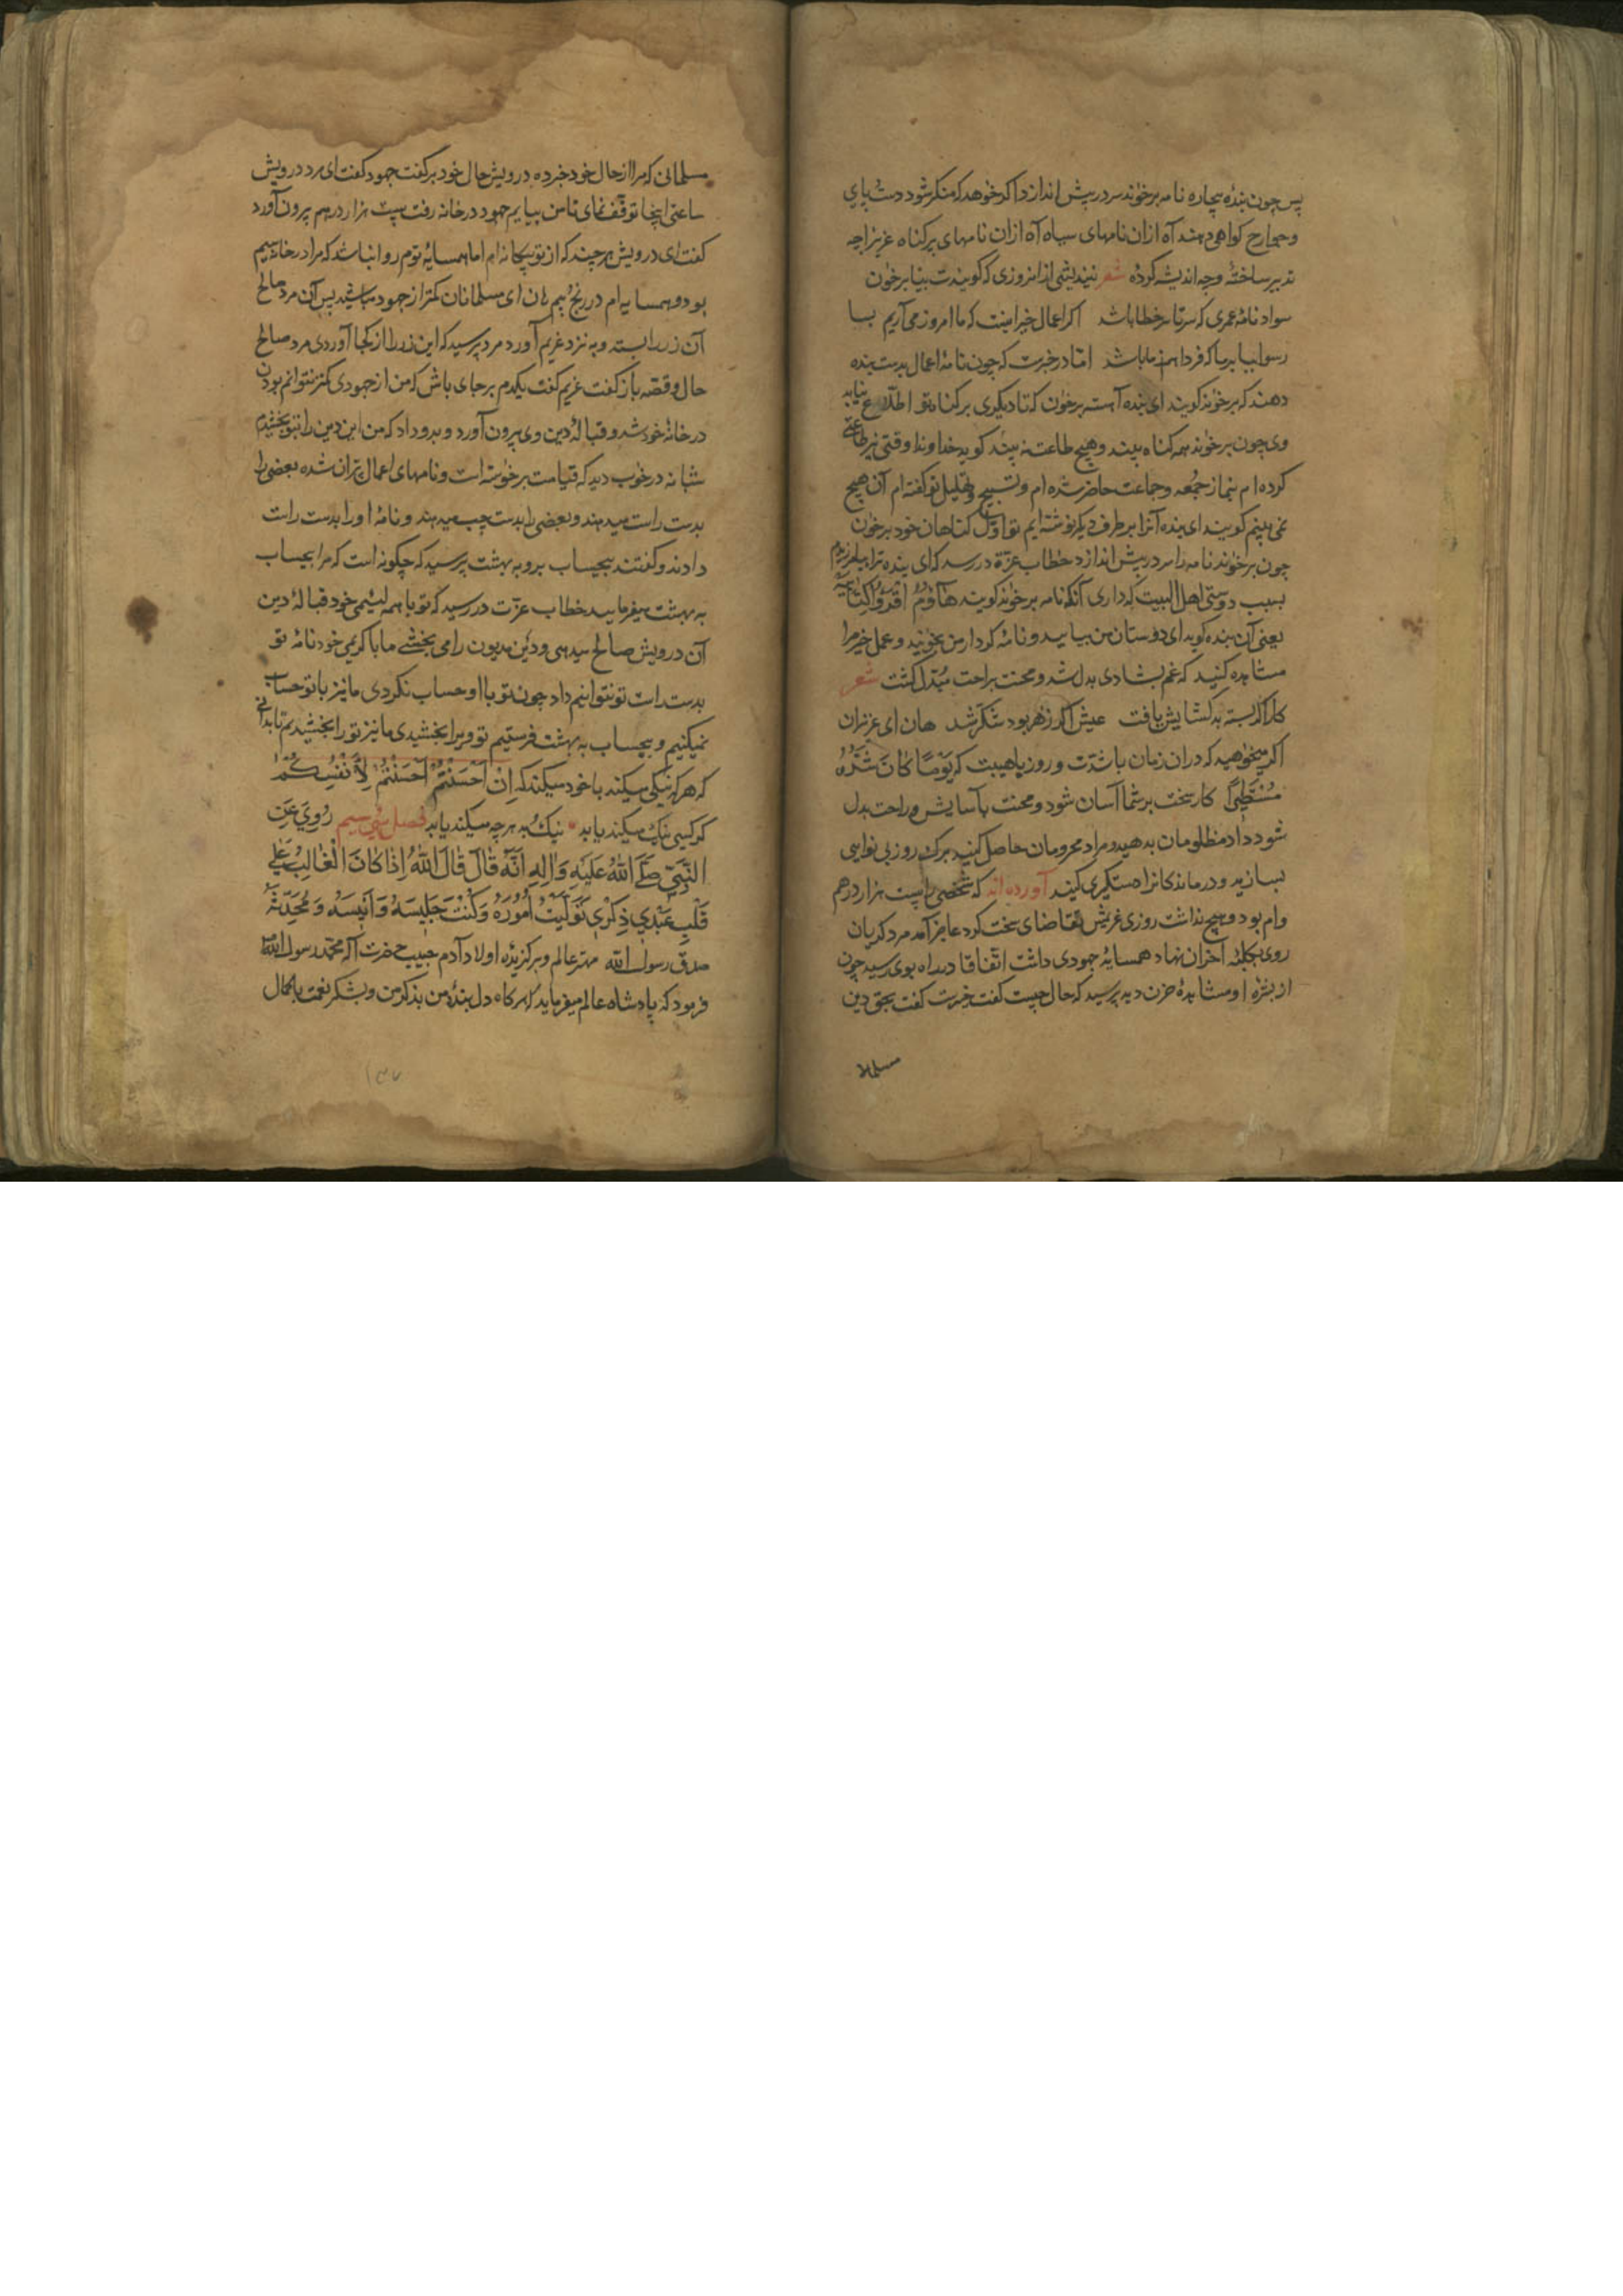 پس چون بنده بیچاره نامه برخواند سر در پیش اندازد اگر خواهد که منکر شود دست و پای
و جوارح کواهی دهند آه ازان نامهای سیاه آه ازان نامهای پر کناه عزیزا چه
تدبیر ساختهٔ و چه اندیشه کردهٔ شعر نیندیشی ازان روزی که کویندت بیا برخوان
سواد نامهٔ عمری که سر تا سر خطا باشد اکر اعمال خیر اینست که ما امروز می آریم بسا
رسوایبا بر ما که فردا هم ز ما باشد امّا در خبرست که چون نامهٔ اعمال بدست بنده
دهند که برخواند کویند ای بنده آهسته برخوان که تا دیکری بر کناه تو اطلاع نیابد
وی چون برخواند همه کناه بیند و هیچ طاعت نه بیند کوید خداوندا وقتی نیز طاعتی
کرده ام بنماز جمعه و جماعت حاضر شده ام و تسبیح و تهلیل تو کفته ام آن هیچ
نمی بینم کویند ای بنده آنرا بر طرف دیکر نوشته ایم تو اوّل کناهان خود برخوان
چون برخواند نامه را سر در پیش اندازد خطاب عزّة در رسد که ای بنده ترا بیامرزیدم
بسبب دوستی اهل البیت که داری آنکه نامه برخواند کویند هَاؤُمُ اقْرَؤُا كِتَابِيَهْ
یعنی آن بنده کوید ای دوستان من بیایید و نامهٔ کردار من بخوانید و عمل خیر مرا
مشاهده کنید که غم بشادی بدل شد و محنت براحت مُبَدّل کشت شعر
کار اکر بسته بد کشایش یافت عیش اکر زهر بود شکّر شد هان ای عزیزان
اکر میخواهید که دران زمان با شدّت و روز با هیبت که یَوْمًا كَانَ شَرُّهُ
مُسْتَطِيرًا کار سخت بر شما آسان شود و محنت بآسایش و راحت بدل
شود داد مظلومان بدهید و مراد محرومان حاصل کنید برک روز بی نوایی
بسازید و درماندکانرا دستکیری کنید آورده اند که شخصی را بیست هزار درهم
وام بود و هیچ نداشت روزی غریمش تقاضای سخت کرد عاجز آمد مرد کریان
روی بکلبهٔ احزان نهاد همسایهٔ جهودی داشت اتّفاقا در راه بوی رسید چون
از بشرهٔ او مشاهدهٔ حزن دید پرسید که حال چیست کفت خیرست کفت بحق دین
مسلمانی
مسلمانی که مرا از حال خود خبر ده درویش حال خود بر کفت جهود کفت ای مرد درویش
ساعتی اینجا توقّف نمای تا من بیایم جهود در خانه رفت بیست هزار درهم بیرون آورد
کفت ای درویش هر چند که از تو بیکانه ام اما همسایهٔ توم روا نباشد که مرا در خانه سیم
بود و همسایه ام در رنج و بیم هان ای مسلمانان کمتر از جهود مباشید پس آن مرد صالح
آن زر را بستد و به نزد غریم آورد مرد پرسید که این زر را از کجا آوردی مرد صالح
حال و قصّه باز کفت غریم کفت یکدم بر جای باش که من از جهودی کمتر نتوانم بودن
در خانهٔ خود شد و قبالهٔ دین وی بیرون آورد و بدو داد که من این دین را بتو بخشیدم
شبانه در خواب دید که قیامت برخوسته است و نامهای اعمال پرّان شده بعضی را
بدست راست میدهند و بعضی را بدست چپ میدهند و نامهٔ او را بدست راست
دادند و کفتند بیحساب برو به بهشت پرسید که چکونه است که مرا بیحساب
به بهشت میفرمایید خطاب عزّت در رسید که تو با همه لئیمی خود قبالهٔ دین
آن درویش صالح میدهی و دَین مدیون را می بخشی ما با کریمی خود نامهٔ تو
بدست راست تو نتوانیم داد چون تو با او حساب نکردی ما نیز با تو حساب
نمیکنیم و بیحساب به بهشت فرستیم تو ویرا بخشیدی ما نیز تو را بخشیدیم تا بدانی
که هر که نیکی میکند با خود میکند که اِنْ اَحْسَنْتُمْ اَحْسَنْتُمْ لِاَنْفُسِكُمْ
کر کسی نیک میکند یابد نیک و بد هر چه میکند یابد فصل سی سیم رُوِيَ عَنِ
النَّبِيّ صَلَّى اللهُ عَلَيْهِ وَاٰلِهِ اَنَّهُ قَالَ قَالَ اللهُ اِذَا كَانَ الْغَالِبُ عَلٰى
قَلْبِ عَبْدِي ذِكْرِي تَوَلَّيْتُ اُمُورَهُ وَكُنْتُ جَلِيسَهُ وَاَنِيسَهُ وَمُحَدِّثَهُ
صدق رسول الله مهتر عالم و برکزیدهٔ اولاد آدم حبیب حضرت اله محمّد رسول الله
فرمود که پادشاه عالم میفرماید که هر کاه دل بندهٔ من بذکر من و بشکر نعمت با کمال
۱۳۷